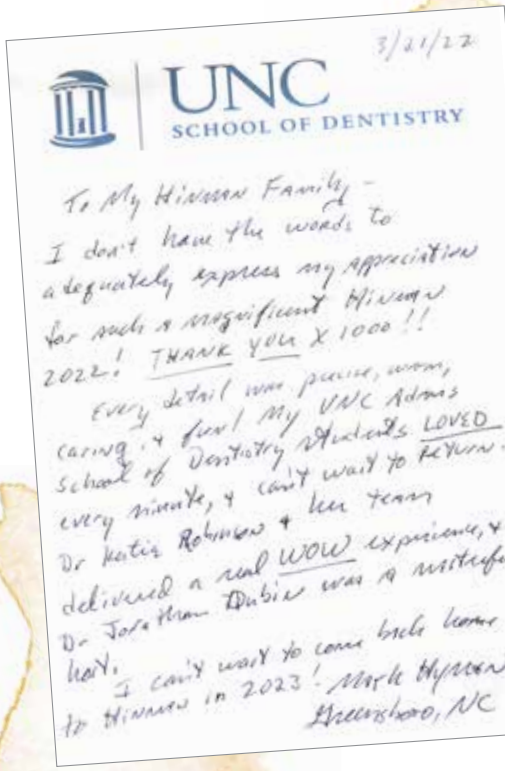 3/21/22
UNC
SCHOOL OF DENTISTRY
To My Hinman Family –
I don't have the words to
adequately express my appreciation
for such a magnificent Hinman
2022! THANK YOU X 1000!!
Every detail was precise, warm,
caring, & fun! My UNC Adams
School of Dentistry students LOVED
every minute, & can't wait to return.
Dr Katie Robinson & her team
delivered a real WOW experience, &
Dr Jonathan Dubin was a
host.
I can't wait to come back home
to Hinman in 2023! Mark Hyman
Greensboro, NC